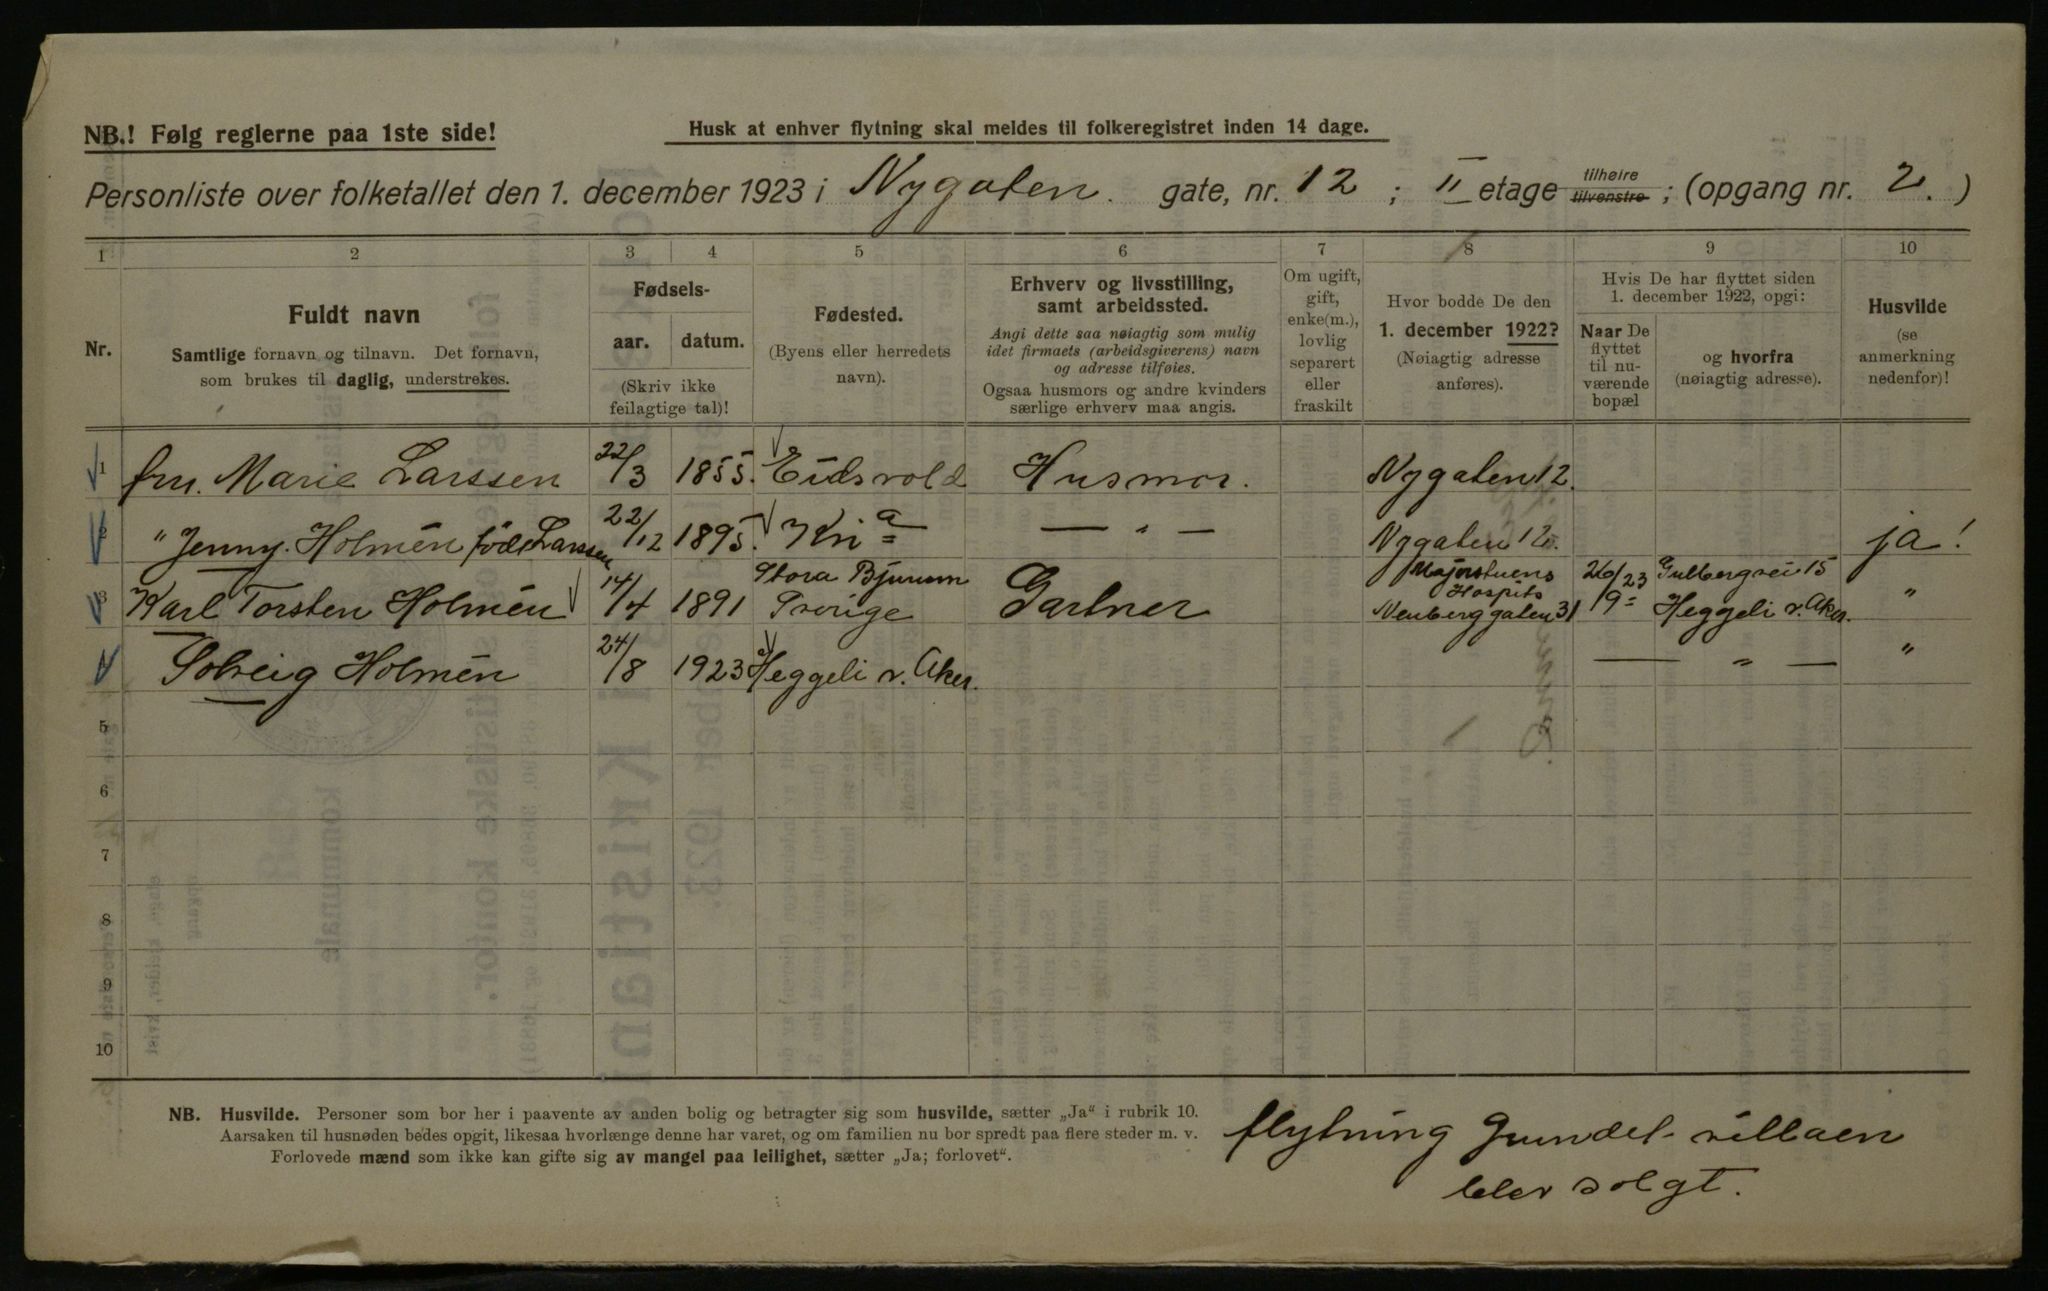 NB.! Følg reglerne paa 1ste side!
Husk at enhver flytning skal meldes til folkeregistret inden 14 dage.
Personliste over folketallet den 1. december 1923 i Nygaten. gate, nr. 12 ; II etage tilhøire tilvenstre ; (opgang nr. 2. )
1 2 3 4 5 6 7 8 9 10
Nr.
Fuldt navn
Samtlige fornavn og tilnavn. Det fornavn,
som brukes til daglig, understrekes.
Fødsels-
aar. datum.
(Skriv ikke
feilagtige tal)!
Fødested.
(Byens eller herredets
navn).
Erhverv og livsstilling,
samt arbeidssted.
Angi dette saa nøiagtig som mulig
idet firmaets (arbeidsgiverens) navn
og adresse tilføies.
Ogsaa husmors og andre kvinders
særlige erhverv maa angis.
Om ugift,
gift,
enke(m.),
lovlig
separert
eller
fraskilt
Hvor bodde De den
1. december 1922?
(Nøiagtig adresse
anføres).
Hvis De har flyttet siden
1. december 1922, opgi:
Naar De
flyttet
til nu-
værende
bopæl
og hvorfra
(nøiagtig adresse).
Husvilde
(se
anmerkning
nedenfor)!
1 fru. Marie Larssen 22/3 1855. Eidsvold Husmor. Nygaten 12.
2 " Jenny. Holmén født Larssen 22/12 1895. Kria — " — Nygaten 12. ja!
3 Karl Torsten Holmén 14/4 1891 Stora Bjurum Sverige Gartner Majorstuens Hospits Neuberggaten 31 26/9 23 Gulbergvei 15 Heggeli v. Aker. "
4 Solveig Holmén 24/8 1923 Heggeli v. Aker. — " — "
5
6
7
8
9
10
NB. Husvilde. Personer som bor her i paavente av anden bolig og betragter sig som husvilde, sætter „Ja" i rubrik 10.
Aarsaken til husnøden bedes opgit, likesaa hvorlænge denne har varet, og om familien nu bor spredt paa flere steder m. v.
Forlovede mænd som ikke kan gifte sig av mangel paa leilighet, sætter „Ja; forlovet".
flytning Grundet villaen
blev solgt.